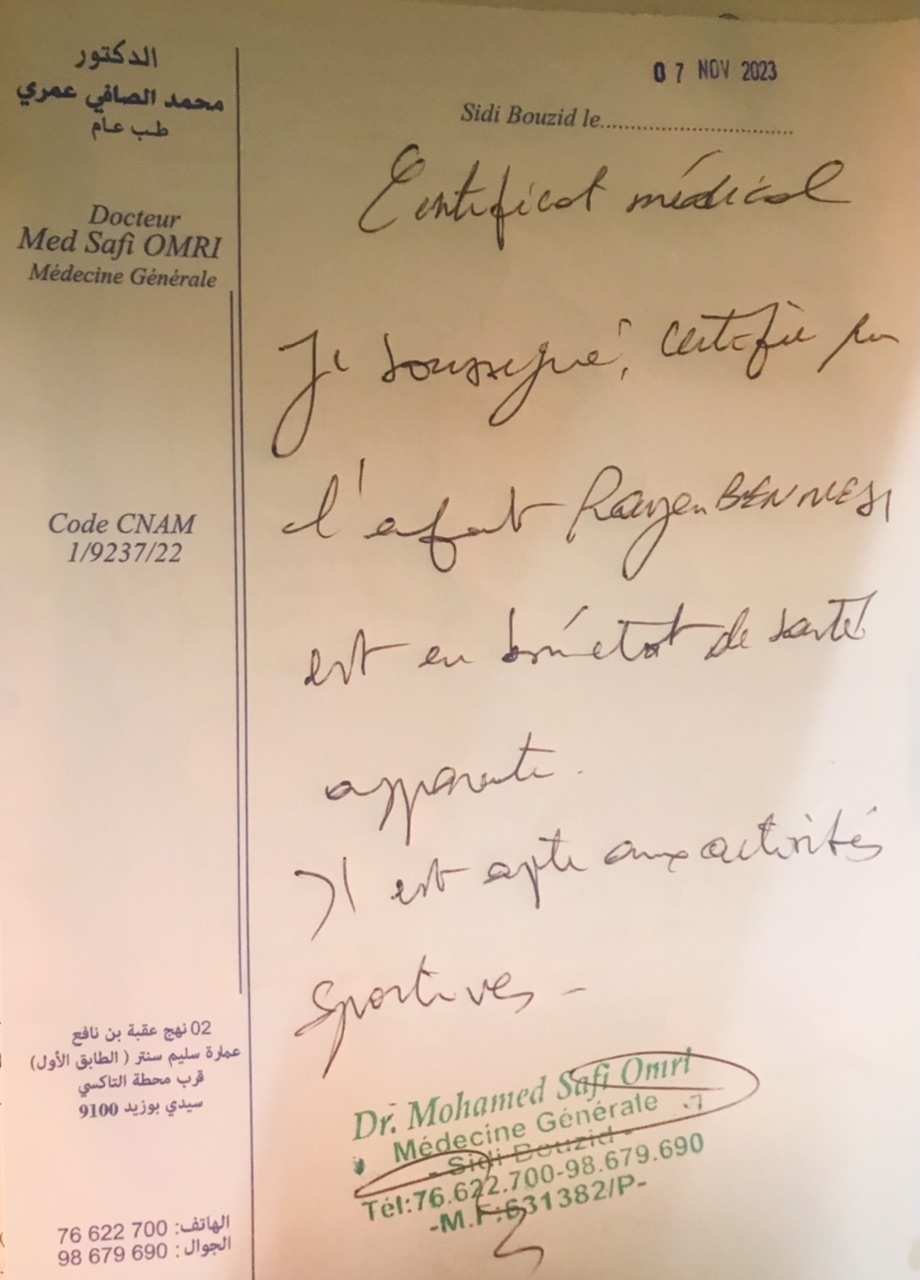 الدكتور
محمد الصافي عمري
طب عام
Docteur
Med Safi OMRI
Médecine Générale
Code CNAM
1/9237/22
02 نهج عقبة بن نافع
عمارة سليم سنتر ( الطابق الأول)
قرب محطة التاكسي
سيدي بوزيد 9100
الهاتف: 700 622 76
الجوال : 690 679 98
07 NOV 2023
Sidi Bouzid le
Certificat médical
Je soussigné, certifie
l'enfant Rayen
est en bon état de santé
apparente.
Il est apte aux activités
Sportives -
Dr. Mohamed Safi Omri
Médecine Générale
- Sidi Bouzid -
Tél:76.622.700-98.679.690
-M.F:631382/P-